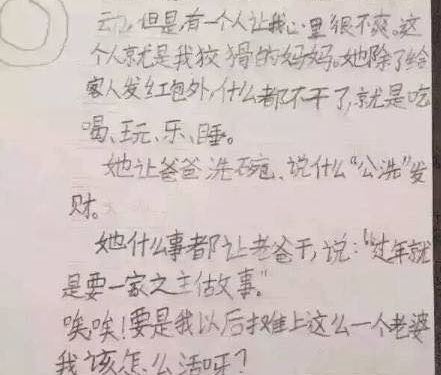 动,但是,有一个人让我心里很不爽。这
个人就是我狡猾的妈妈。她除了给
客人发红包外,什么都不干了,就是吃
喝、玩、乐、睡。
她让爸爸洗碗,说什么“公洗”发
财。
她什么事都让老爸干,说:“过年就
是要一家之主做事。”
唉唉!要是我以后摊上这么一个老婆
我该怎么活呀?